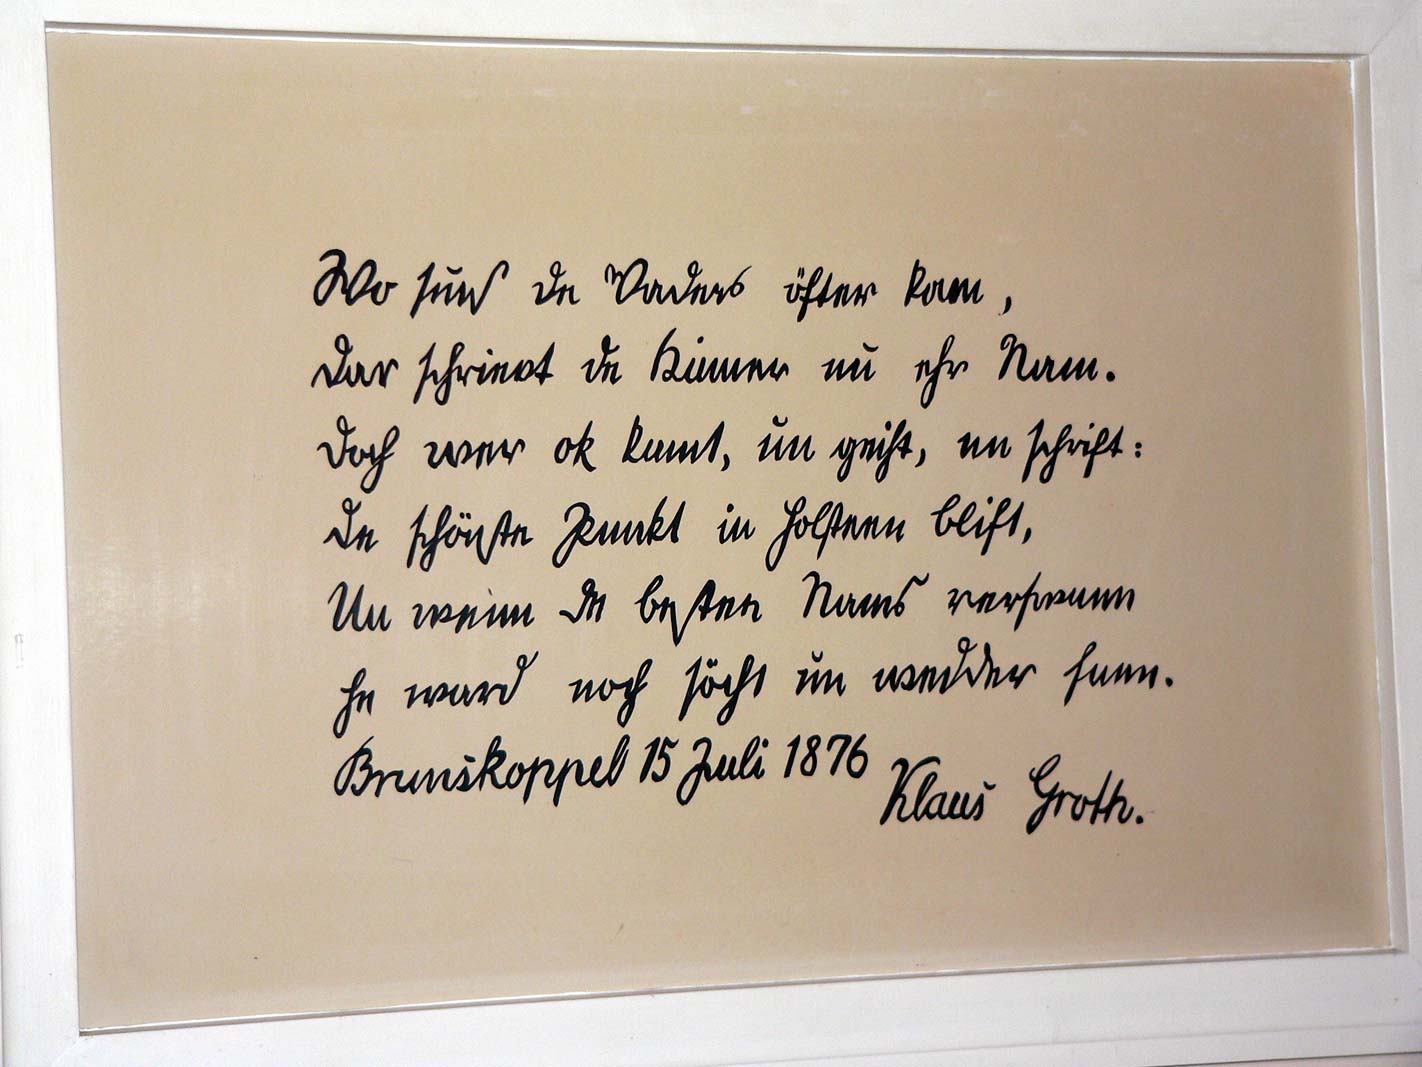 Wo süns de Vaders öfter kam,
Dar schrievt de Kinner nu ehr Nam.
Doch wer ok kumt, un geiht, un schrift:
De schönste Punkt in Holsteen blift,
Un wenn de besten Nams verswunn
he ward noch söcht un wedder funn.
Brunskoppel 15 Juli 1876
Klaus Groth.